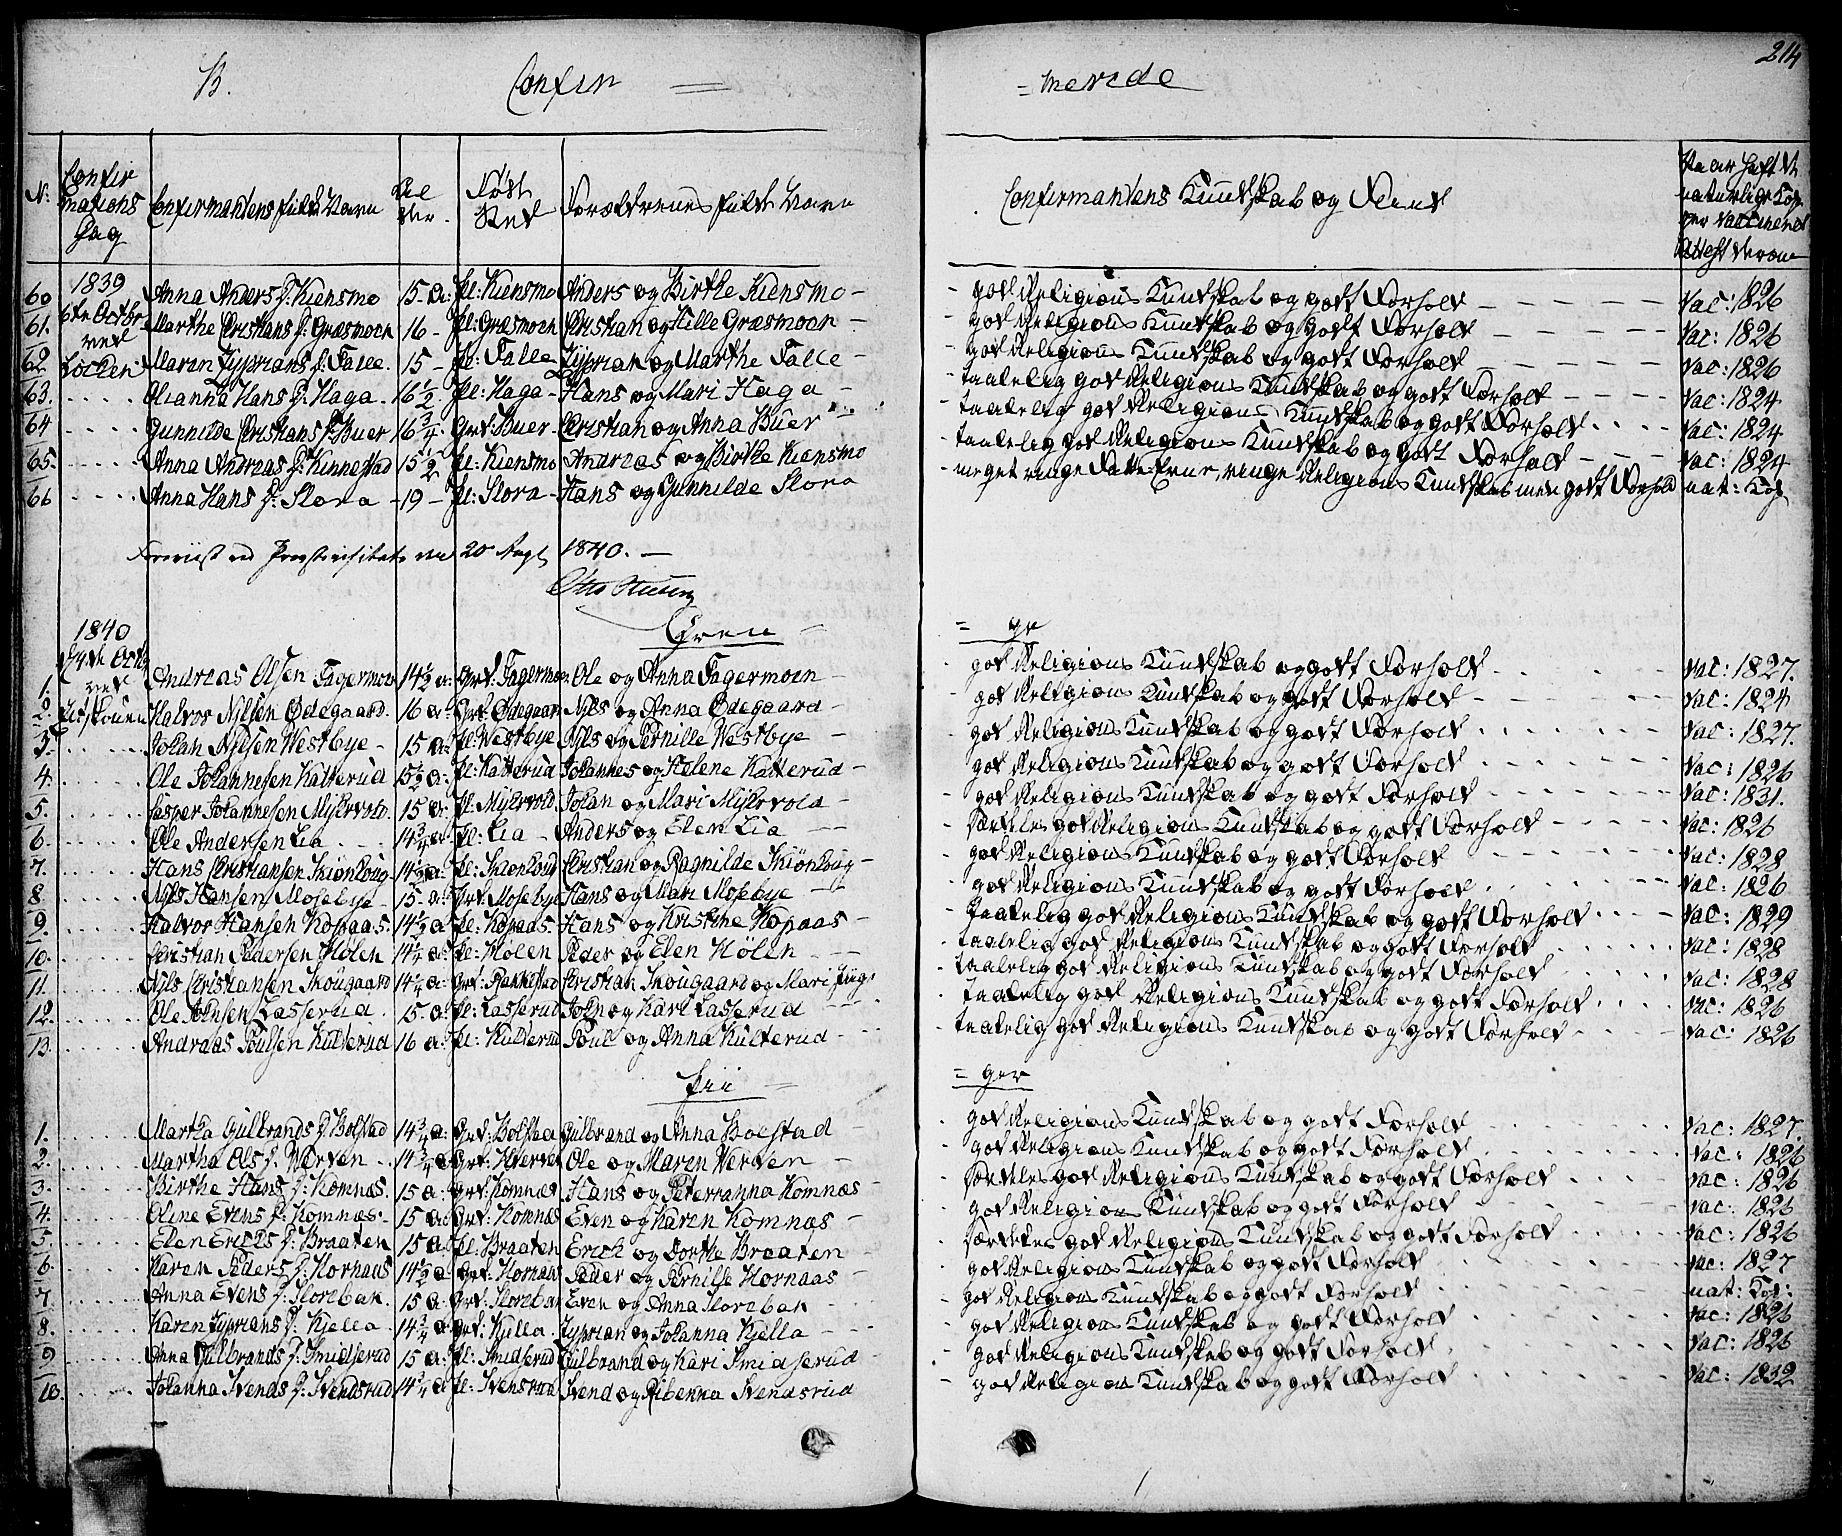 214
B. Confir = = merede
N: Confirmations Dag Confirmandens fulde Navn Alder. Føde Sted Forældrenes fulde Navn Confirmandens Kundskab og Flid
1839
60 Anna Anders D: Kiensmo 15 a: Pl: Kiensmo Anders og Birthe Kiensmo - god Religions Kundskab og godt Forhold Vac: 1826
61. 6te Octbr Marthe Christians D: Græsmoen 16 - Pl: Græsmoen Christian og Hille Græsmoen - god Religions Kundskab og godt Forhold Vac: 1826
62 ved Maren Zyprians D: Falle. 15 - Pl: Falle Zyprian og Marthe Falle - god Religions Kundskab og godt Forhold Vac: 1826
63. Løcken Olianna Hans D: Haga - 16 1/2 Pl: Haga - Hans og Mari Haga - taalelig god Religions Kundskab og godt Forhold Vac: 1824
64 Gunnilde Christians D: Buer 16 3/4 Grd: Buer - Christian og Anna Buer - taalelig god Religions Kundskab og godt Forhold Vac: 1824
65. Anna Andreas D: Kinnestad 15 1/2 Pl: Kiensmo Andreas og Birthe Kiensmo - taalelig god Religions Kundskab og godt Forhold Vac: 1824
66 Anna Hans D: Slora - 19 - Pl: Slora - Hans og Gunnilde Slora - meget ringe Fatte Evne, ringe Religions Kundskab men godt Forhold nat: Kop
20 Augt 1840. -
1840
Dren = = ge
1. Andreas Olsen Fagermoen 14 1/2 a: Grd: Fagermoen Ole og Anna Fagermoen - god Religions Kundskab og godt Forhold Vac: 1827.
2. ved Halvor Nilsen Ødegaard. 16 a: Grd: Ødegaard Nils og Anna Ødegaard - god Religions Kundskab og godt Forhold Vac: 1824
3. Johan Nilsen Westbye - 15 a: Pl: Westbye Nils og Pernille Westbye - god Religions Kundskab og godt Forhold Vac: 1827.
4. Ole Johannesen Katterud 15 1/2 a: Pl: Katterud Johannes og Helene Katterud - god Religions Kundskab og godt Forhold Vac: 1826
5. Casper Johannesen Mijervold. 15 a: Pl: Mijervold. Johan og Mari Mijervold - god Religions Kundskab og godt Forhold Vac: 1831.
6. Ole Andersen Lia 14 3/4 a Pl: Lia - Anders og Elen Lia - særdeles god Religions Kundskab og godt Forhold Vac: 1826
7. Hans Christiansen Skiønhoug 14 1/2 a: Pl: Skiønhoug Christian og Ragnilde Skiønhoug - god Religions Kundskab og godt Forhold Vac: 1828
8. Nils Hansen Mosebye - 15 - a: Grd: Mosebye Hans og Mari Mosebye - god Religions Kundskab og godt Forhold Vac: 1826
9. Halvor Hansen Kopaas. 14 1/2 a Pl: Kopaas. Hans og Kristine Kopaas - taalelig god Religions Kundskab og godt Forhold Vac: 1829
10. Christian Pedersen Hølen 14 1/4 a Pl: Hølen Peder og Elen Hølen - taalelig god Religions Kundskab og godt Forhold Vac: 1828
11. Nils Christiansen Skougaard 14 1/4 a: Grd: Rakkestad Christian Skougaard og Mari - taalelig god Religions Kundskab og godt Forhold Vac: 1828
12. Ole Johnsen Lasserud. 15 - a: Pl: Lasserud John og Kari Lasserud taalelig god Religions Kundskab og godt Forhold Vac: 1826
13. Andreas Poulsen Kulterud 16 a: Pl: Kulterud Poul og Anna Kulterud - taalelig god Religions Kundskab og godt Forhold Vac: 1826
Pii = = ger
1. Martha Gulbrands D: Bolstad 14 3/4 a: Grd: Bolstad Gulbrand og Anna Bolstad - god Religions Kundskab og godt Forhold Vac: 1827.
2. Martha Ols D: Werven - 14 3/4 a Grd: Werven Ole og Maren Werven - god Religions Kundskab og godt Forhold Vac: 1826
3. Birthe Hans D: Komnæs. 15 a: Grd: Komnæs Hans og Peterranna Komnæs - særdeles god Religions Kundskab og godt Forhold Vac: 1826
4. Oline Evens D: Komnæs. 15 a: Grd: Komnæs Even og Karen Komnæs - god Religions Kundskab og godt Forhold Vac: 1826
5. Elen Ericks D: Braaten 15 a: Pl: Braaten Erick og Dorthe Braaten særdeles god Religions Kundskab og godt Forhold Vac: 1826
6. Karen Peders D: Hornaas 14 1/2 a Grd: Hornaas Peder og Pernille Hornaas - god Religions Kundskab og godt Forhold Vac: 1827
7. Anna Evens D: Slorebak. 15 a: Grd: Slorebak Even og Anna Slorebak - god Religions Kundskab og godt Forhold nat: Kop:
8. Karen Zyprians D: Kjella. 14 3/4 a Grd: Kjella. Zyprian og Johanna Kjella - god Religions Kundskab og godt Forhold Vac: 1826
9 Anna Gulbrands D: Smidserud 15 a: Pl: Smidserud Gulbrand og Kari Smidserud - god Religions Kundskab og godt Forhold Vac: 1826
10. Johanna Svends D: Svendsrud 14 3/4 a Pl: Svensrud Svend og Ribenna Svendsrud god Religions Kundskab og godt Forhold Vac: 1832